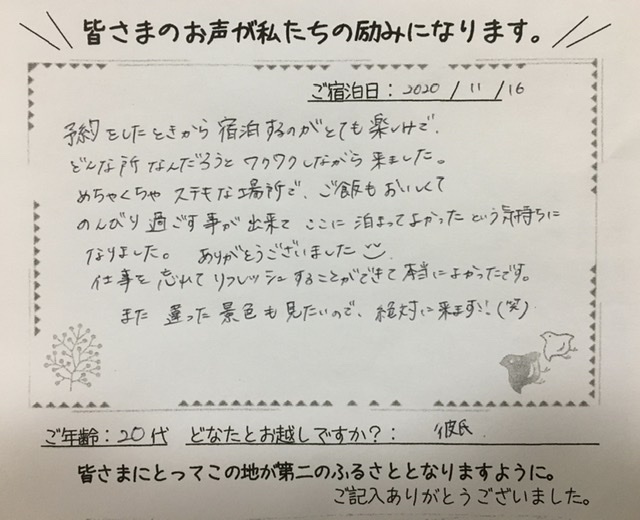 皆さまのお声が私たちの励みになります。
ご宿泊日：2020/11/16
予約をしたときから宿泊するのがとても楽しみで、
どんな所なんだろうとワクワクしながら来ました。
めちゃくちゃステキな場所で、ご飯もおいしくて
のんびり過ごす事が出来て ここに泊まってよかったという気持ちに
なりました。 ありがとうございました
仕事を忘れてリフレッシュすることができて本当によかったです。
また違った景色も見たいので、絶対に来ます!!(笑)
ご年齢：20代 どなたとお越しですか？：彼氏
皆さまにとってこの地が第二のふるさととなりますように。
ご記入ありがとうございました。